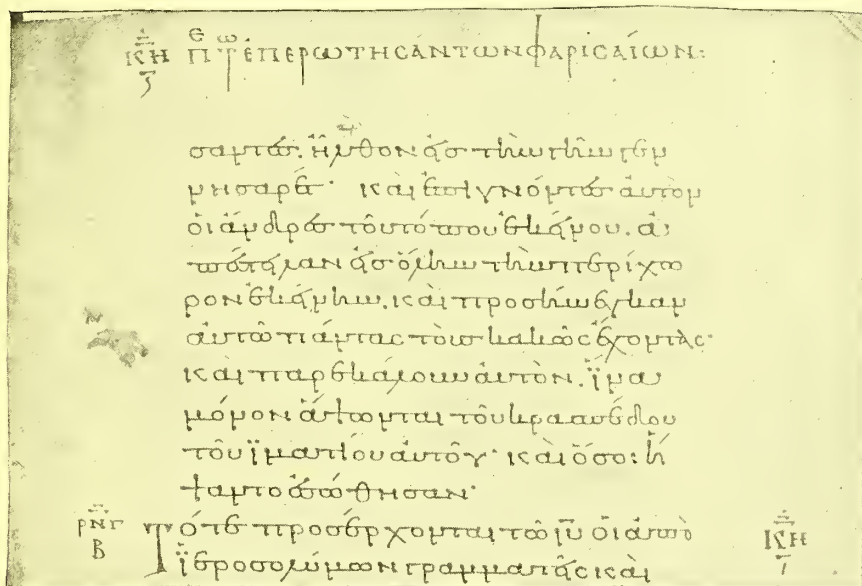 ΚΗ ἐπερωτησάντων φαρισαίων:
σαντες. ἦλθον εἰς τὴν γῆν γεν
νησαρέτ· καὶ ἐπιγνόντες αὐτὸν
οἱ ἄνδρες τοῦ τόπου ἐκείνου. ἀ
πέστειλαν εἰς ὅλην τὴν περίχω
ρον ἐκείνην. καὶ προσήνεγκαν
αὐτῷ πάντας τοὺς κακῶς ἔχοντας·
καὶ παρεκάλουν αὐτὸν. ἵνα
μόνον ἅψωνται τοῦ κρασπέδου
τοῦ ἱματίου αὐτοῦ· καὶ ὅσοι ἥ
ψαντο ἐσώθησαν·
ΡΝΓ Τότε προσέρχονται τῶ ιῦ οἱ ἀπὸ ΚΗ
Β ἱεροσολύμων γραμματεῖς καὶ